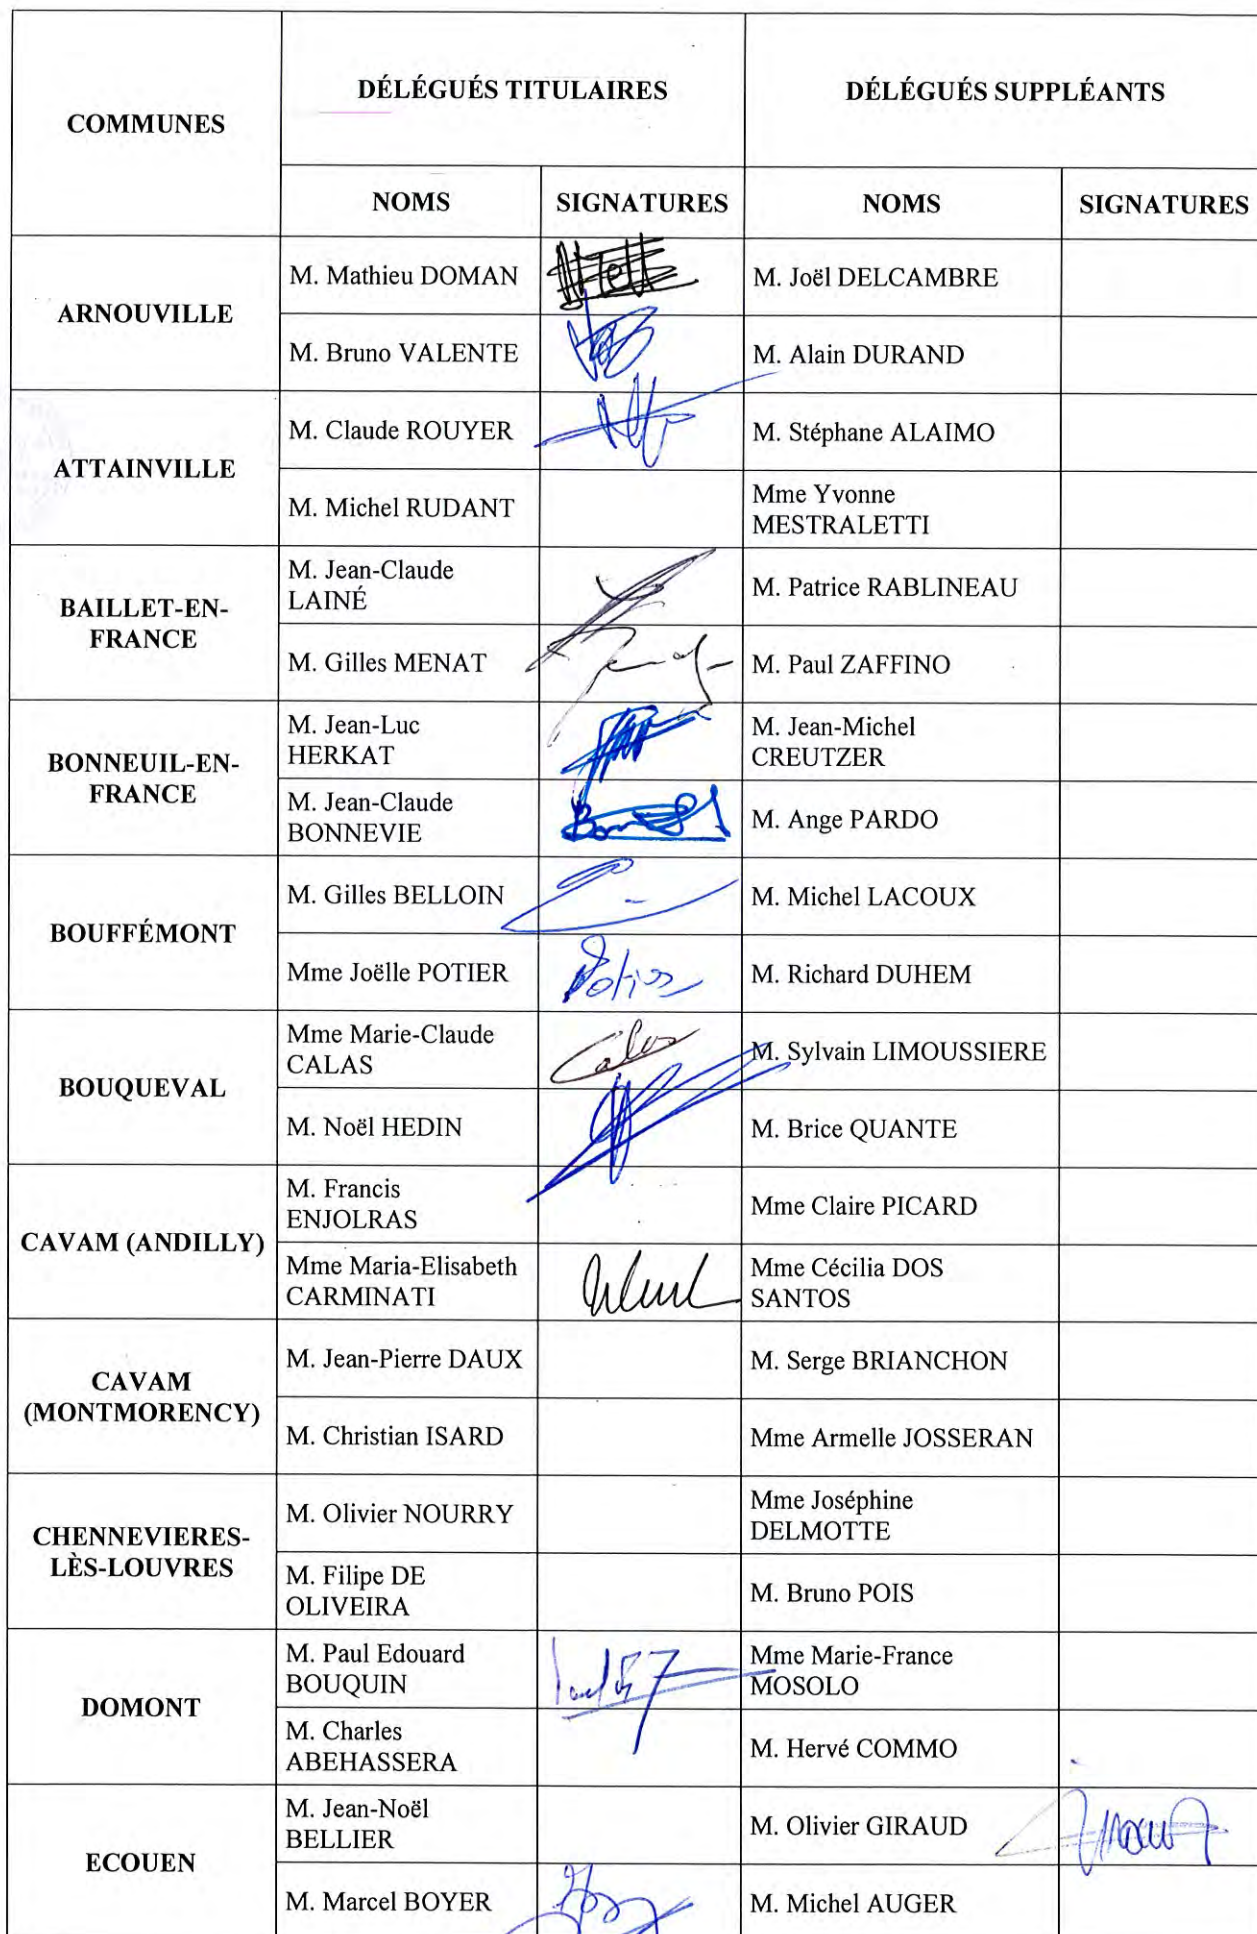 COMMUNES
DÉLÉGUÉS TITULAIRES
DÉLÉGUÉS SUPPLÉANTS
NOMS
SIGNATURES
NOMS
SIGNATURES
ARNOUVILLE
M. Mathieu DOMAN
M. Joël DELCAMBRE
M. Bruno VALENTE
M. Alain DURAND
ATTAINVILLE
M. Claude ROUYER
M. Stéphane ALAIMO
M. Michel RUDANT
Mme Yvonne
MESTRALETTI
BAILLET-EN-
FRANCE
M. Jean-Claude
LAINÉ
M. Patrice RABLINEAU
M. Gilles MENAT
M. Paul ZAFFINO
BONNEUIL-EN-
FRANCE
M. Jean-Luc
HERKAT
M. Jean-Michel
CREUTZER
M. Jean-Claude
BONNEVIE
M. Ange PARDO
BOUFFÉMONT
M. Gilles BELLOIN
M. Michel LACOUX
Mme Joëlle POTIER
Potier
M. Richard DUHEM
BOUQUEVAL
Mme Marie-Claude
CALAS
Calas
M. Sylvain LIMOUSSIERE
M. Noël HEDIN
M. Brice QUANTE
CAVAM (ANDILLY)
M. Francis
ENJOLRAS
Mme Claire PICARD
Mme Maria-Elisabeth
CARMINATI
Mme Cécilia DOS
SANTOS
CAVAM
(MONTMORENCY)
M. Jean-Pierre DAUX
M. Serge BRIANCHON
M. Christian ISARD
Mme Armelle JOSSERAN
CHENNEVIERES-
LÈS-LOUVRES
M. Olivier NOURRY
Mme Joséphine
DELMOTTE
M. Filipe DE
OLIVEIRA
M. Bruno POIS
DOMONT
M. Paul Edouard
BOUQUIN
Mme Marie-France
MOSOLO
M. Charles
ABEHASSERA
M. Hervé COMMO
ECOUEN
M. Jean-Noël
BELLIER
M. Olivier GIRAUD
M. Marcel BOYER
M. Michel AUGER